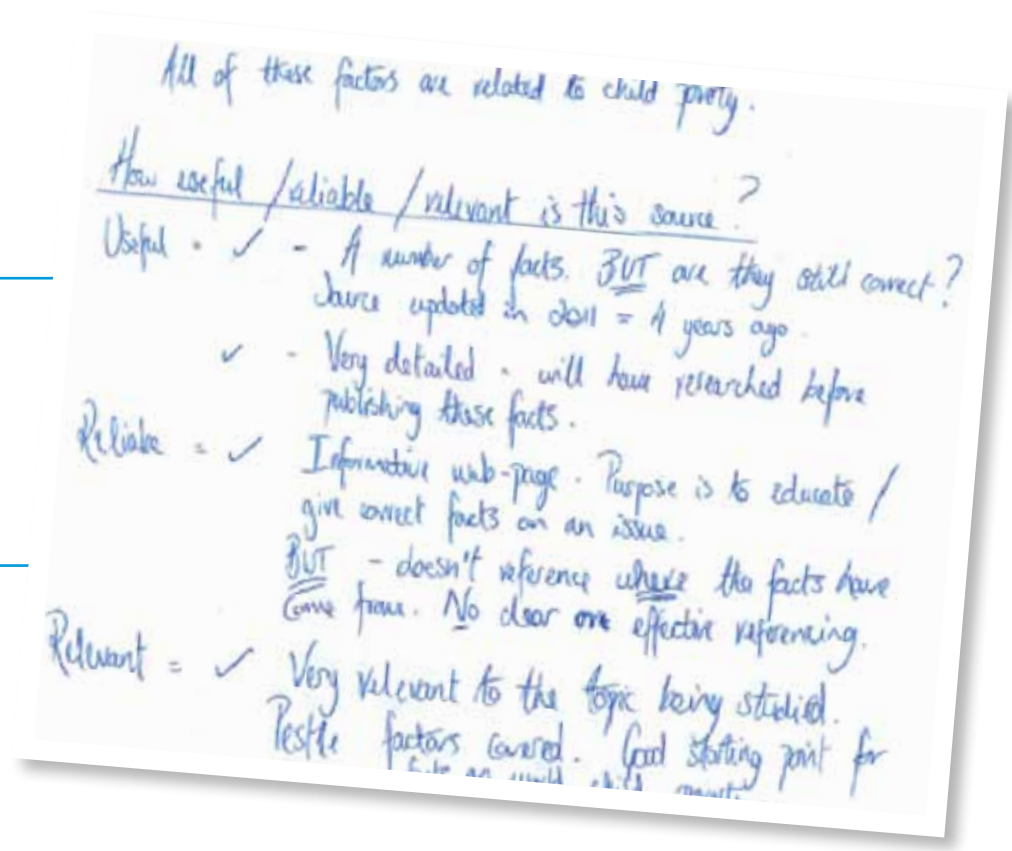 All of these factors are related to child povety.
How useful / reliable / relevant is this source?
Useful = ✓ - A number of facts. BUT are they still correct?
Source updated in 2011 = 4 years ago.
✓ - Very detailed - will have researched before
publishing these facts.
Reliabe = ✓ Informative web-page. Purpose is to educate /
give correct facts on an issue.
BUT - doesn't reference where the facts have
come from. No clear effective referencing.
Relevant = ✓ Very relevant to the topic being studied.
Pestle factors covered. Good starting point for
child